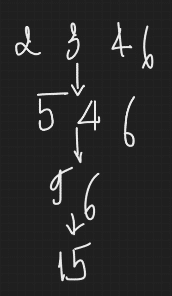 2 3 4 6
5 4 6
9 6
15